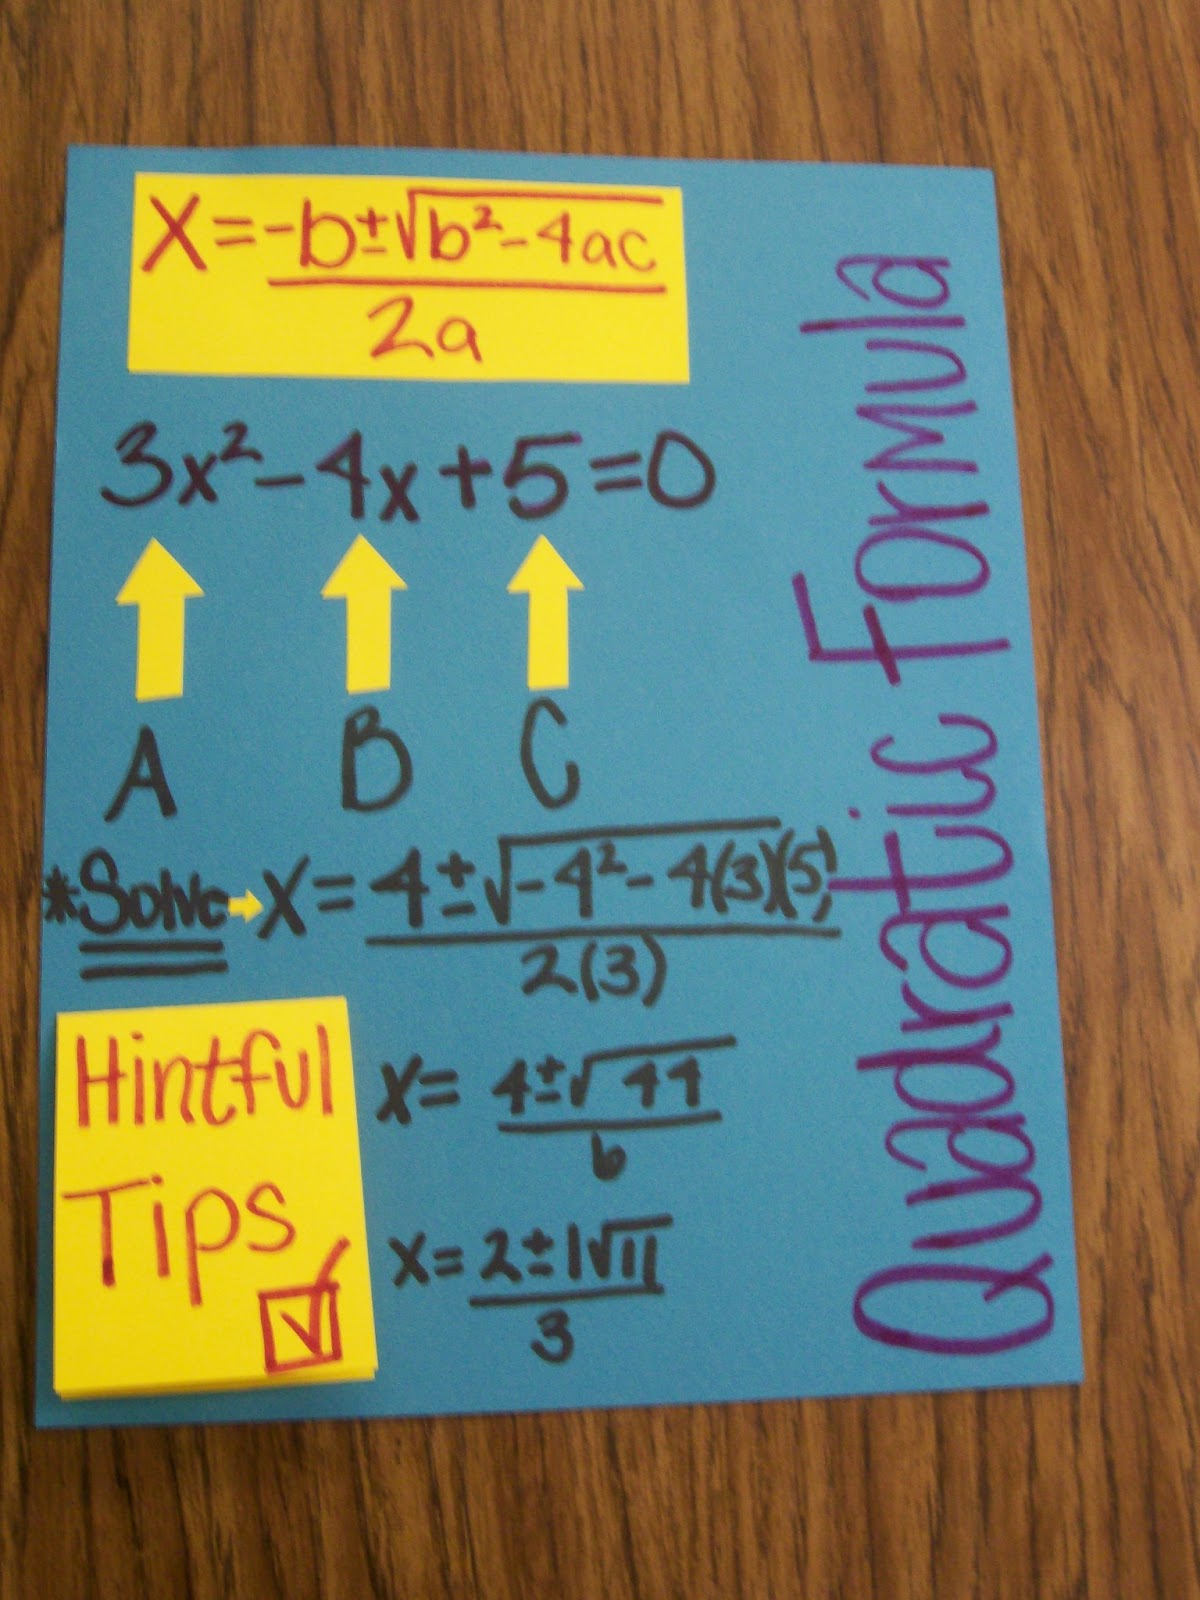 X = -b±√b²-4ac
2a
3x²-4x+5=0
A B C
*Solve X= 4±√-4²-4(3)(5)
2(3)
Hintful
Tips
x= 4±√44
6
x= 2±1√11
3
Quadratic Formula